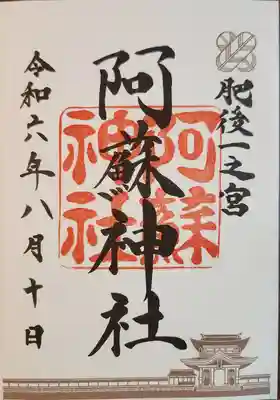 肥後一之宮
阿蘇神社
阿蘇
神社
令和六年八月十日